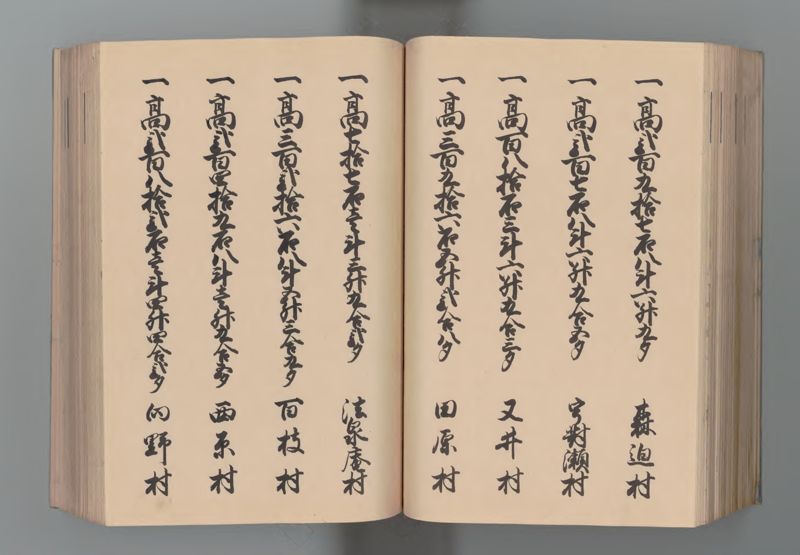 一高弐百九拾七石八斗六升九夕 森迫村
一高弐百七石八斗六升九合五夕 宇對瀬村
一高百八拾石三斗六升九合三夕 又井村
一高三百九拾六石五升弐合八夕 田原村
一高七拾七石壱斗三升九合弐夕 法泉庵村
一高三百弐拾六石八斗五升三合九夕 百枝村
一高弐百四拾九石八斗壱升九合五夕 西原村
一高弐百八拾弐石壱斗四升四合弐夕 向野村